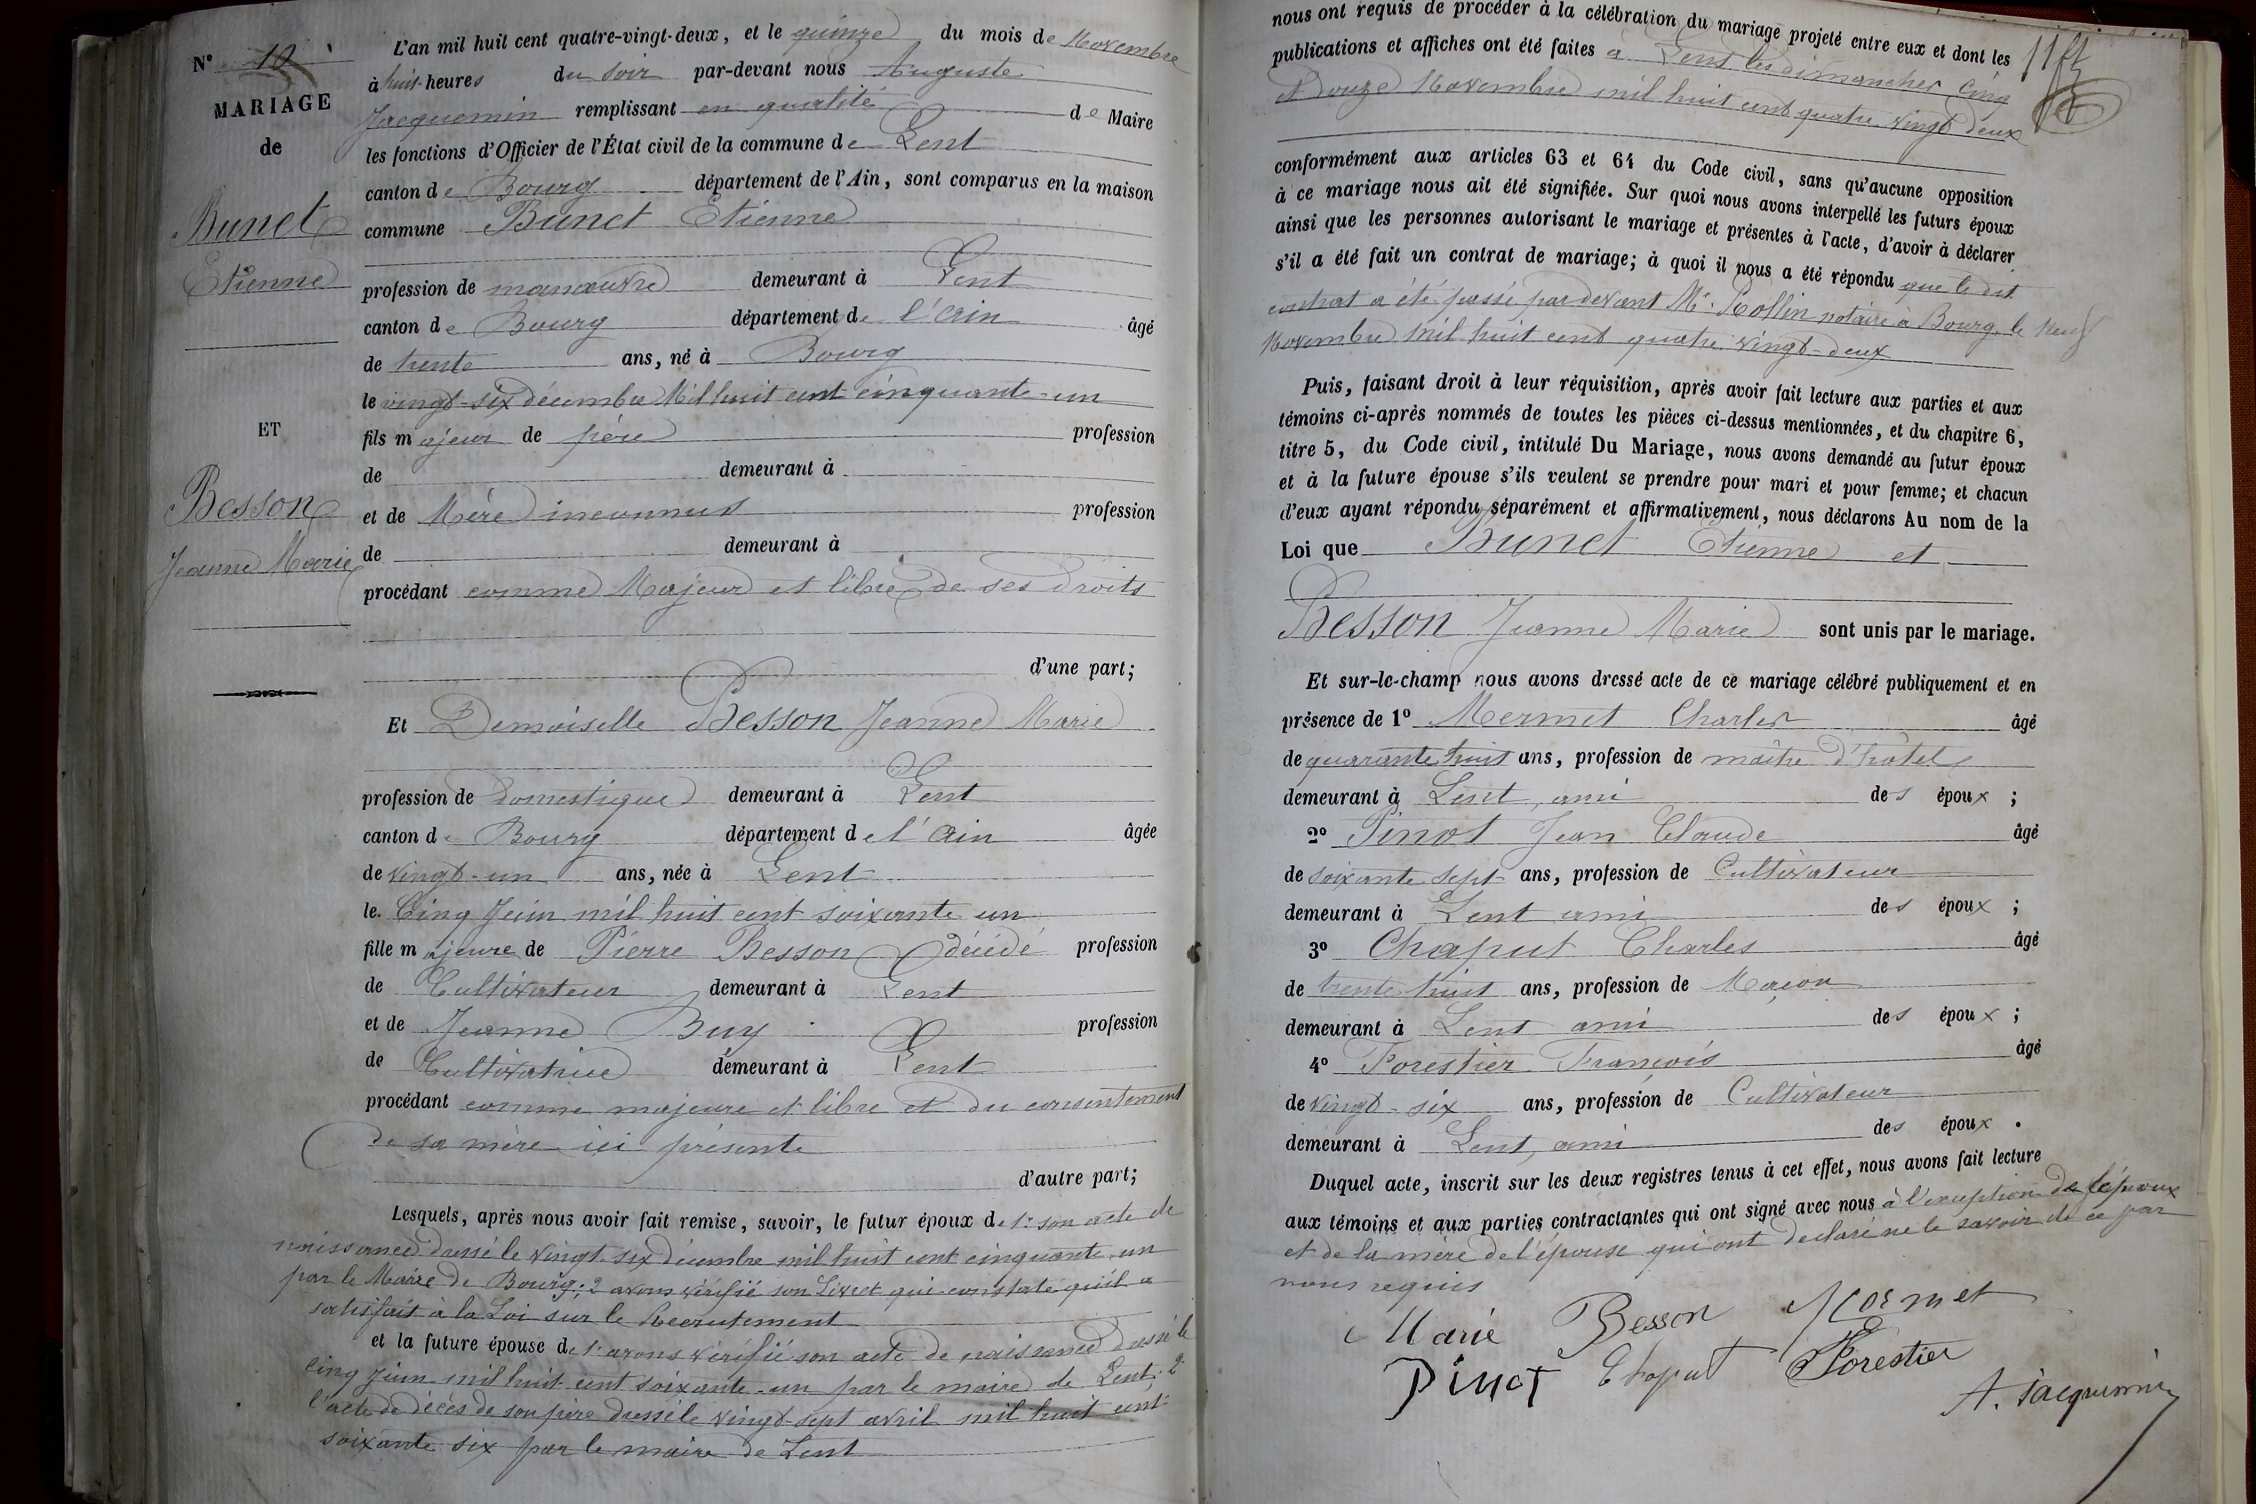 N° 10
MARIAGE
de
Bunet
Etienne
ET
Besson
Jeanne Marie
L'an mil huit cent quatre-vingt-deux, et le quinze du mois de Novembre
à huit heures du soir par-devant nous Auguste
Jacquemin remplissant en qualité de Maire
les fonctions d'Officier de l'État civil de la commune de Lent
canton de Bourg département de l'Ain, sont comparus en la maison
commune Bunet Etienne
profession de manœuvre demeurant à Lent
canton de Bourg département de l'Ain âgé
de trente ans, né à Bourg
le vingt-six décembre Mil huit cent cinquante-un
fils majeur de père profession
de demeurant à
et de Mère inconnus profession
de demeurant à
procédant comme Majeur et libre de ses droits
d'une part;
Et Demoiselle Besson Jeanne Marie
profession de Domestique demeurant à Lent
canton de Bourg département de l'Ain âgée
de vingt-un ans, née à Lent
le Cinq Juin mil huit cent soixante un
fille majeure de Pierre Besson décédé profession
de Cultivateur demeurant à Lent
et de Jeanne Buy profession
de Cultivatrice demeurant à Lent
procédant comme majeure et libre et du consentement
de sa mère ici présente
d'autre part;
Lesquels, après nous avoir fait remise, savoir, le futur époux de 1° son acte de
naissance dressé le vingt six décembre mil huit cent cinquante un
par le Maire de Bourg; 2 avons vérifié son Livret qui constate qu'il a
satisfait à la Loi sur le Recrutement
et la future épouse de 1° avons vérifié son acte de naissance dressé le
cinq Juin mil huit cent soixante-un par le maire de Lent; 2°
l'acte de décès de son père dressé le vingt-sept avril mil huit cent
soixante six par le maire de Lent
nous ont requis de procéder à la célébration du mariage projeté entre eux et dont les
publications et affiches ont été faites à Lent les dimanches Cinq
et Douze Novembre mil huit cent quatre vingt deux
conformément aux articles 63 et 64 du Code civil, sans qu'aucune opposition
à ce mariage nous ait été signifiée. Sur quoi nous avons interpellé les futurs époux
ainsi que les personnes autorisant le mariage et présentes à l'acte, d'avoir à déclarer
s'il a été fait un contrat de mariage; à quoi il nous a été répondu que le dit
contrat a été passé par devant Me. Rollin notaire à Bourg, le Neuf
Novembre Mil huit cent quatre vingt-deux
Puis, faisant droit à leur réquisition, après avoir fait lecture aux parties et aux
témoins ci-après nommés de toutes les pièces ci-dessus mentionnées, et du chapitre 6,
titre 5, du Code civil, intitulé Du Mariage, nous avons demandé au futur époux
et à la future épouse s'ils veulent se prendre pour mari et pour femme; et chacun
d'eux ayant répondu séparément et affirmativement, nous déclarons Au nom de la
Loi que Bunet Etienne et
Besson Jeanne Marie sont unis par le mariage.
Et sur-le-champ nous avons dressé acte de ce mariage célébré publiquement et en
présence de 1° Mermet Charles âgé
de quarante huit ans, profession de maître d'hôtel
demeurant à Lent, ami des époux ;
2° Pinot Jean Claude âgé
de soixante sept ans, profession de Cultivateur
demeurant à Lent ami des époux ;
3° Chaput Charles âgé
de trente huit ans, profession de Maçon
demeurant à Lent ami des époux ;
4° Forestier François âgé
de vingt-six ans, profession de Cultivateur
demeurant à Lent, ami des époux .
Duquel acte, inscrit sur les deux registres tenus à cet effet, nous avons fait lecture
aux témoins et aux parties contractantes qui ont signé avec nous à l'exception de l'époux
et de la mère de l'épouse qui ont déclaré ne le savoir de ce par
nous requis
Marie Besson Mermet
Pinot Chaput Forestier
A. Jacquemin